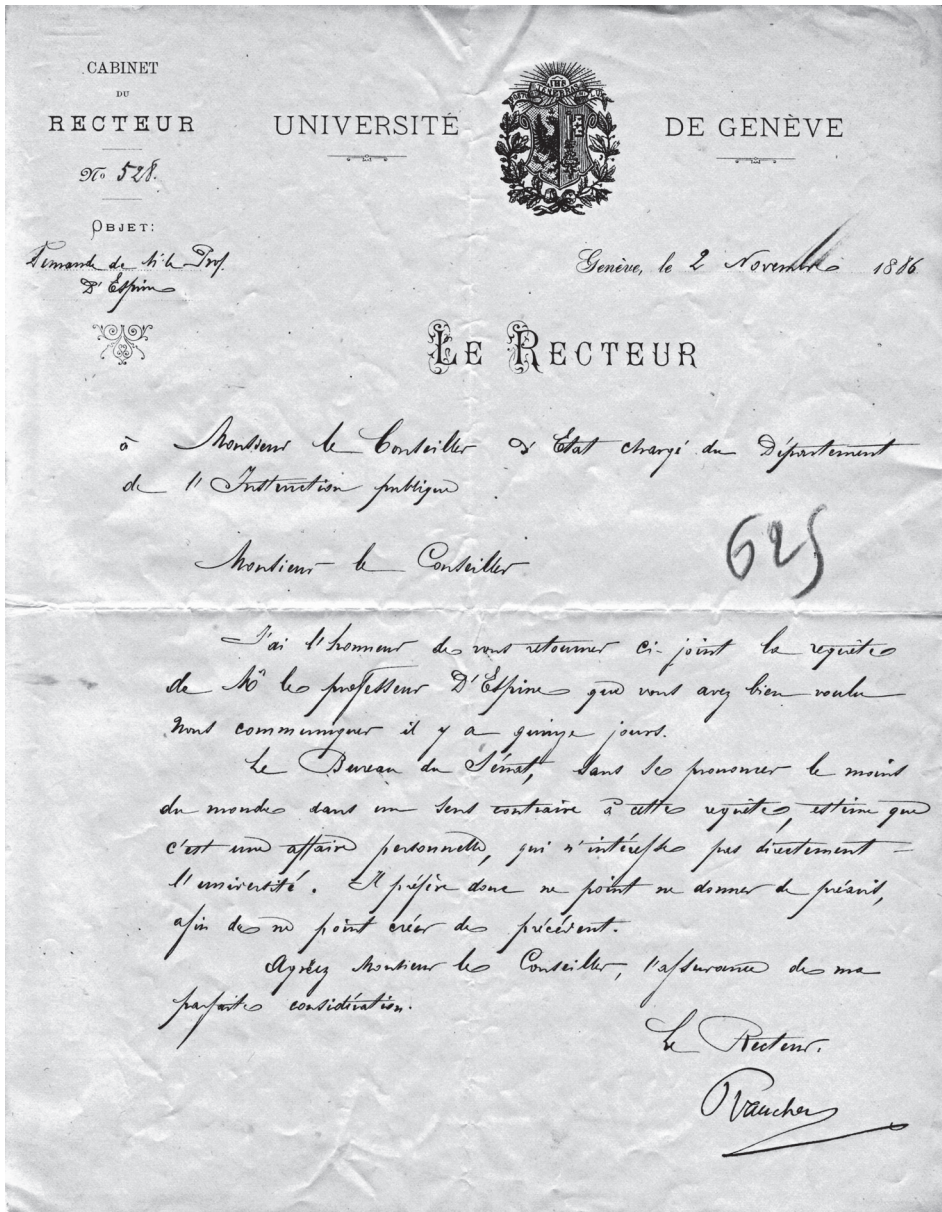 CABINET
DU
RECTEUR
No 528.
OBJET:
Demande de Mr le Prof.
D'Espine
UNIVERSITÉ DE GENÈVE
IHS
POST TENEBRAS LUX
Genève, le 2 Novembre 1886
LE RECTEUR
à Monsieur le Conseiller d'Etat chargé du Département
de l'Instruction publique
625
Monsieur le Conseiller
J'ai l'honneur de vous retourner ci-joint la requête
de Mr le professeur D'Espine que vous avez bien voulu
nous communiquer il y a quinze jours.
Le Bureau du Sénat, sans se prononcer le moins
du monde dans un sens contraire à cette requête, estime que
c'est une affaire personnelle, qui n'intéresse pas directement
l'université. Il préfère donc ne point ne donner de préavis,
afin de ne point créer de précédent.
Agréez Monsieur le Conseiller, l'assurance de ma
parfaite considération.
Le Recteur.
P Vaucher